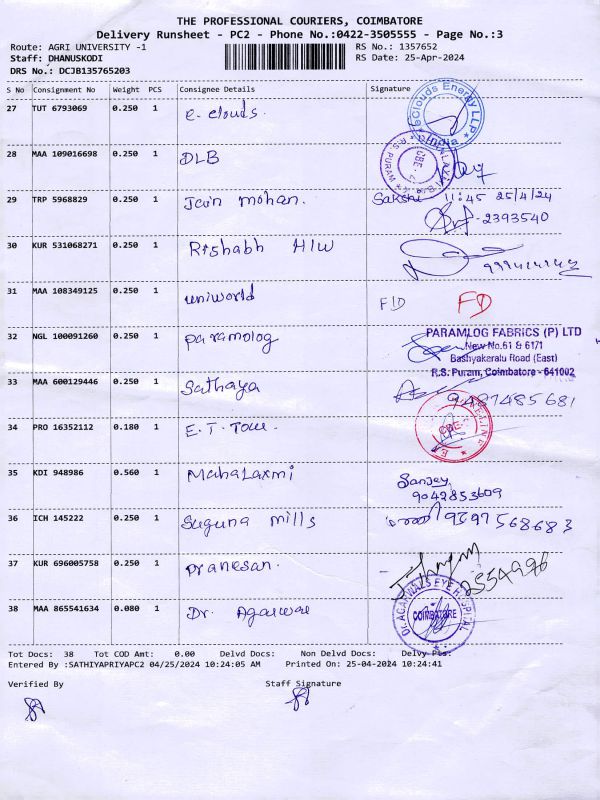 THE PROFESSIONAL COURIERS, COIMBATORE
Delivery Runsheet - PC2 - Phone No.:0422-3505555 - Page No.:3
Route: AGRI UNIVERSITY -1 RS No.: 1357652
Staff: DHANUSKODI RS Date: 25-Apr-2024
DRS No.: DCJB135765203
S No Consignment No Weight PCS Consignee Details Signature
27 TUT 6793069 0.250 1 e-clouds. eClouds Energy LLP India
28 MAA 109016698 0.250 1 DLB R.S. PURAM
29 TRP 5968829 0.250 1 Jain mohan. Sakshi 11:45 25/4/24
2393540
30 KUR 531068271 0.250 1 Rishabh H/W
31 MAA 108349125 0.250 1 uniworld FID FD
32 NGL 100091260 0.250 1 paramolog PARAMLOG FABRICS (P) LTD
New No.61 & 61/1
Bashyakaralu Road (East)
R.S. Puram, Coimbatore - 641002
33 MAA 600129446 0.250 1 Sathaya 9487485681
34 PRO 16352112 0.180 1 E.T. Tour. CBE
35 KDI 948986 0.560 1 Mahalaxmi Sanjey
9042853609
36 ICH 145222 0.250 1 Suguna mills 9397568683
37 KUR 696005758 0.250 1 pranesan. 2554996
38 MAA 865541634 0.080 1 Dr. Agarwal Dr. AGARWALS EYE HOSPITAL COIMBATORE
Tot Docs: 38 Tot COD Amt: 0.00 Delvd Docs: Non Delvd Docs: Delvy Pts:
Entered By :SATHIYAPRIYAPC2 04/25/2024 10:24:05 AM Printed On: 25-04-2024 10:24:41
Verified By Staff Signature